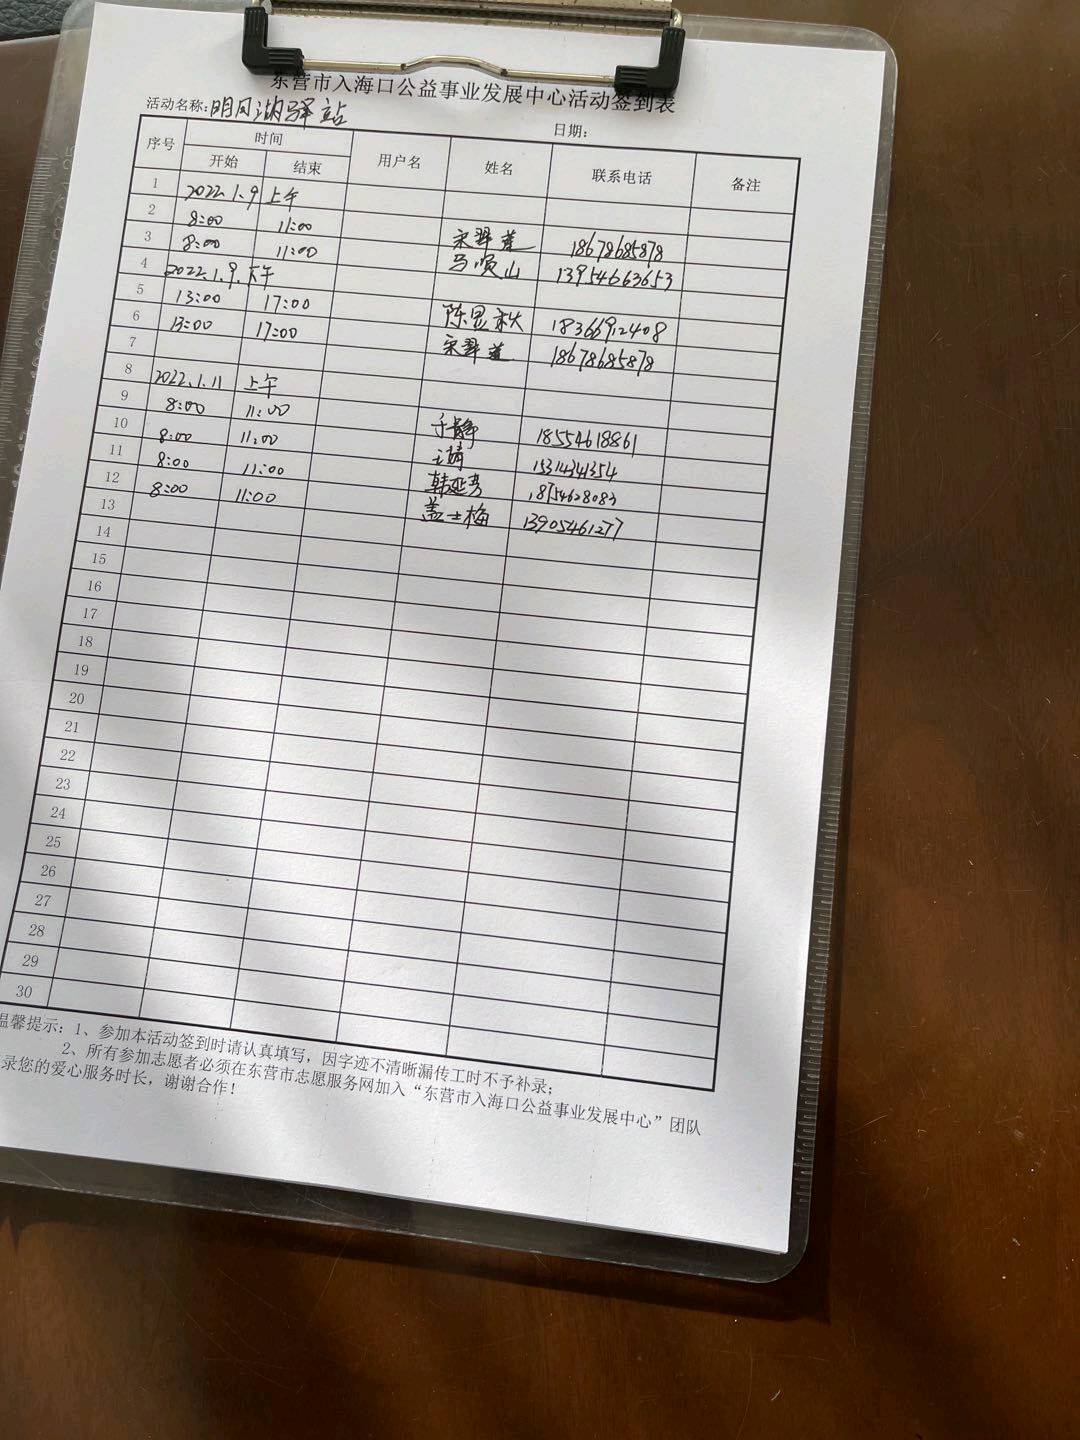 东营市入海口公益事业发展中心活动签到表
活动名称:明月湖驿站 日期:
序号 时间 用户名 姓名 联系电话 备注
开始 结束
1 2022.1.9 上午
2 8:00 11:00 宋翠莲 18678685878
3 8:00 11:00 马顺山 13954663653
4 2022.1.9.下午
5 13:00 17:00 陈显秋 18366912408
6 13:00 17:00 宋翠莲 18678685878
7
8 2022.1.11 上午
9 8:00 11:00 于静 18554618861
10 8:00 11:00 15314341354
11 8:00 11:00 韩延芳 18754628083
12 8:00 11:00 盖士梅 13905461277
13
14
15
16
17
18
19
20
21
22
23
24
25
26
27
28
29
30
温馨提示:1、参加本活动签到时请认真填写,因字迹不清晰漏传工时不予补录;
2、所有参加志愿者必须在东营市志愿服务网加入“东营市入海口公益事业发展中心”团队
录您的爱心服务时长,谢谢合作!